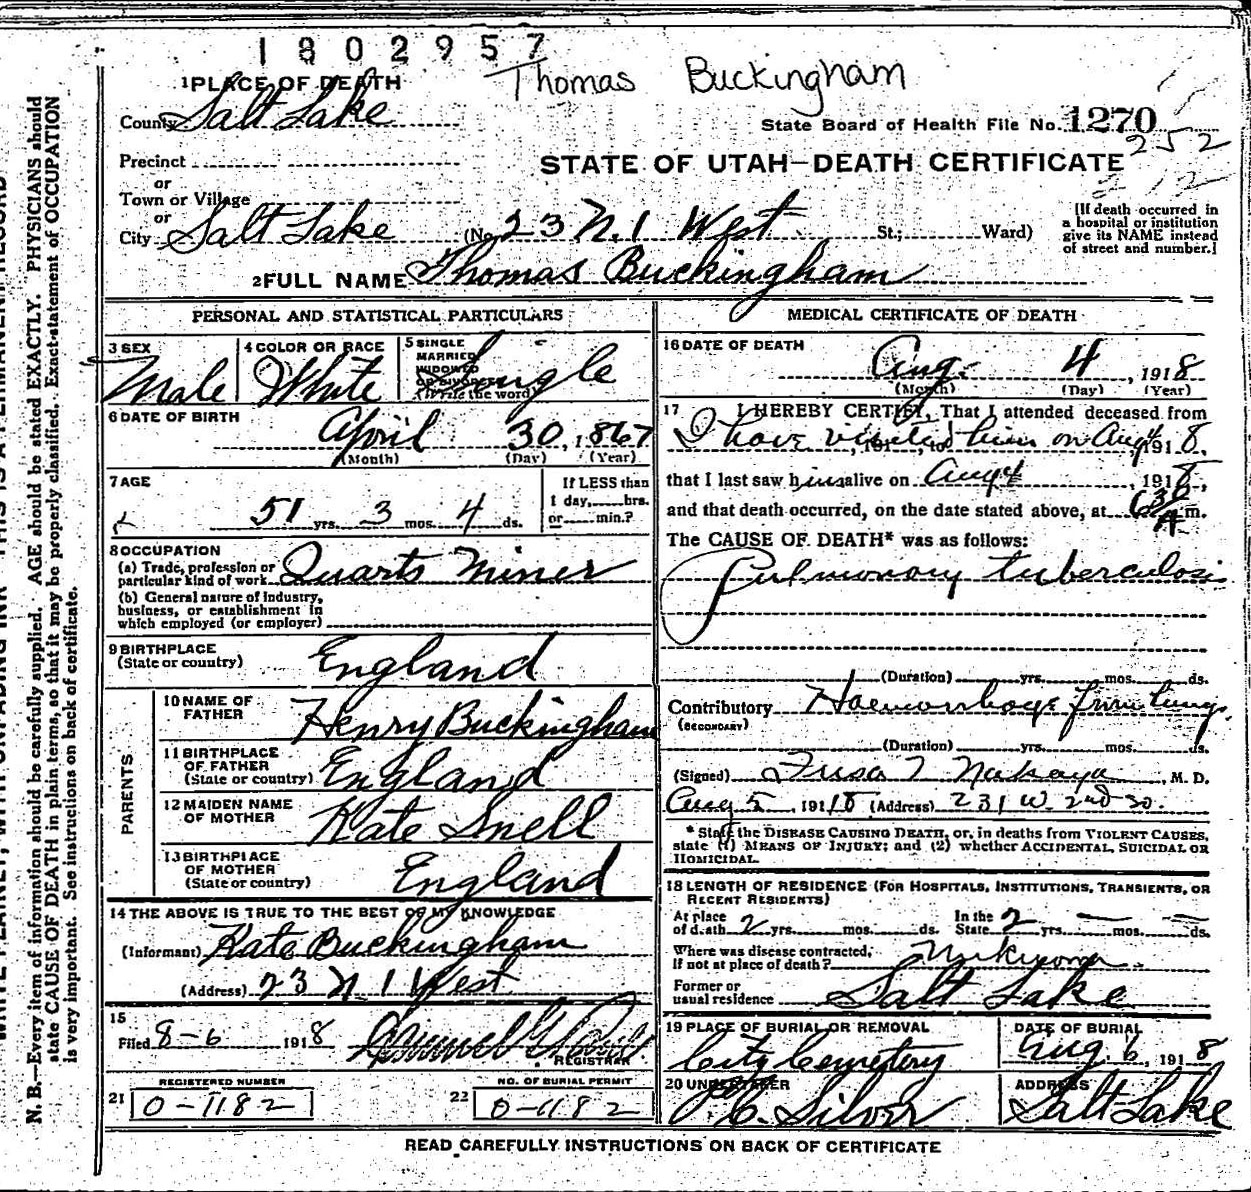 1802957
Thomas Buckingham
1 PLACE OF DEATH
County Salt Lake
State Board of Health File No. 1270
252
Precinct
STATE OF UTAH—DEATH CERTIFICATE
or
Town or Village
or
City Salt Lake (No. 23 N. 1 West St.; Ward)
[If death occurred in
a hospital or institution
give its NAME instead
of street and number.]
2 FULL NAME Thomas Buckingham
PERSONAL AND STATISTICAL PARTICULARS
3 SEX
Male
4 COLOR OR RACE
White
5 SINGLE
MARRIED
WIDOWED
OR DIVORCED
(Write the word)
Single
6 DATE OF BIRTH
April 30, 1867
(Month) (Day) (Year)
7 AGE
51 yrs. 3 mos. 4 ds.
If LESS than
1 day, hrs.
or min.?
8 OCCUPATION
(a) Trade, profession or
particular kind of work Quarts Miner
(b) General nature of industry,
business, or establishment in
which employed (or employer)
9 BIRTHPLACE
(State or country) England
PARENTS
10 NAME OF
FATHER Henry Buckingham
11 BIRTHPLACE
OF FATHER
(State or country) England
12 MAIDEN NAME
OF MOTHER Kate Snell
13 BIRTHPLACE
OF MOTHER
(State or country) England
14 THE ABOVE IS TRUE TO THE BEST OF MY KNOWLEDGE
(Informant) Kate Buckingham
(Address) 23 N 1 West
15
Filed 8-6 1918
REGISTRAR
REGISTERED NUMBER
21 0-1182
NO. OF BURIAL PERMIT
22 0-1182
MEDICAL CERTIFICATE OF DEATH
16 DATE OF DEATH
Aug. 4, 1918
(Month) (Day) (Year)
17 I HEREBY CERTIFY, That I attended deceased from
I have visited him on Aug 4 1918,
that I last saw him alive on Aug 4, 1918,
and that death occurred, on the date stated above, at 6 30 A m.
The CAUSE OF DEATH* was as follows:
Pulmonary tuberculosis
(Duration) yrs. mos. ds.
Contributory Haemorrhage from lungs.
(SECONDARY)
(Duration) yrs. mos. ds.
(Signed) Fusa T Nakaya, M. D.
Aug 5, 1918 (Address) 231 W. 2nd So.
* State the DISEASE CAUSING DEATH, or, in deaths from VIOLENT CAUSES,
state (1) MEANS OF INJURY; and (2) whether ACCIDENTAL, SUICIDAL OR
HOMICIDAL.
18 LENGTH OF RESIDENCE (FOR HOSPITALS, INSTITUTIONS, TRANSIENTS, OR
RECENT RESIDENTS)
At place
of death 2 yrs. mos. ds.
In the
State 2 yrs. — mos. — ds.
Where was disease contracted,
If not at place of death?
Former or
usual residence Salt Lake
19 PLACE OF BURIAL OR REMOVAL
City Cemetery
DATE OF BURIAL
Aug. 6, 1918
20 UNDERTAKER
ADDRESS
Salt Lake
READ CAREFULLY INSTRUCTIONS ON BACK OF CERTIFICATE
N. B.—Every item of information should be carefully supplied. AGE should be stated EXACTLY. PHYSICIANS should
state CAUSE OF DEATH in plain terms, so that it may be properly classified. Exact statement of OCCUPATION
is very important. See instructions on back of certificate.